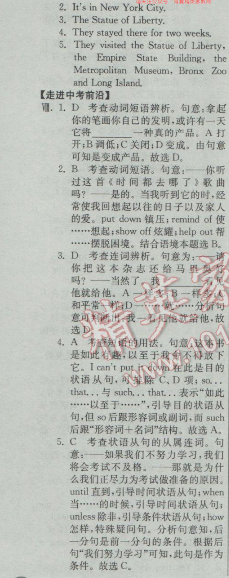 2. It's in New York City.
3. The Statue of Liberty.
4. They stayed there for two weeks.
5. They visited the Statue of Liberty,
the Empire State Building, the
Metropolitan Museum, Bronx Zoo
and Long Island.
【走进中考前沿】
Ⅶ. 1. D 考查动词短语辨析。句意:拿起
你的笔画你自己的发明,或许有一天
它将______一种真的产品。A 打
开;B 调低;C 关闭;D 变成。由句意
可知是变成产品。故选 D。
2. B 考查动词短语。句意:——你听
过这首《时间都去哪了》歌曲
吗?——是的。当我听到它的时,经
常使我回想起以往的日子以及家人
的爱。put down 镇压;remind of 使
……想起;show off 炫耀;help out 帮
……摆脱困境。结合语境本题选 B。
3. D 考查连词辨析。句意为:——请
你把这本杂志还给马
吗?——当然了。
他就给他。A 一
和平常一样;D 一
意可 他就给他,故
选
4. A 的用法。句意:这本书
是如此 趣,以至于我 不得放下
它。I can't put 在此是目的
状语从句,可 除 C、D 项;so...
that...与 such...that...表示“如此
……以至于……”,引导目的状语从
句,但 so 后跟形容词或副词,而 such
后跟“形容词+名词”结构。故选 A。
5. C 考查状语从句的从属连词。句
意:——如果我们不努力学习,我们
将会考试不及格。——那就是为什
么我们正尽力为考试做准备的原因。
until 直到,引导时间状语从句;when
当……的时候,引导时间状语从句;
unless 除非,引导条件状语从句;how
怎样,特殊疑问句。分析句意知,后
一分句是前一分句的条件。根据后
句“我们努力学习”可知,此句是作为
条件。故选 C。